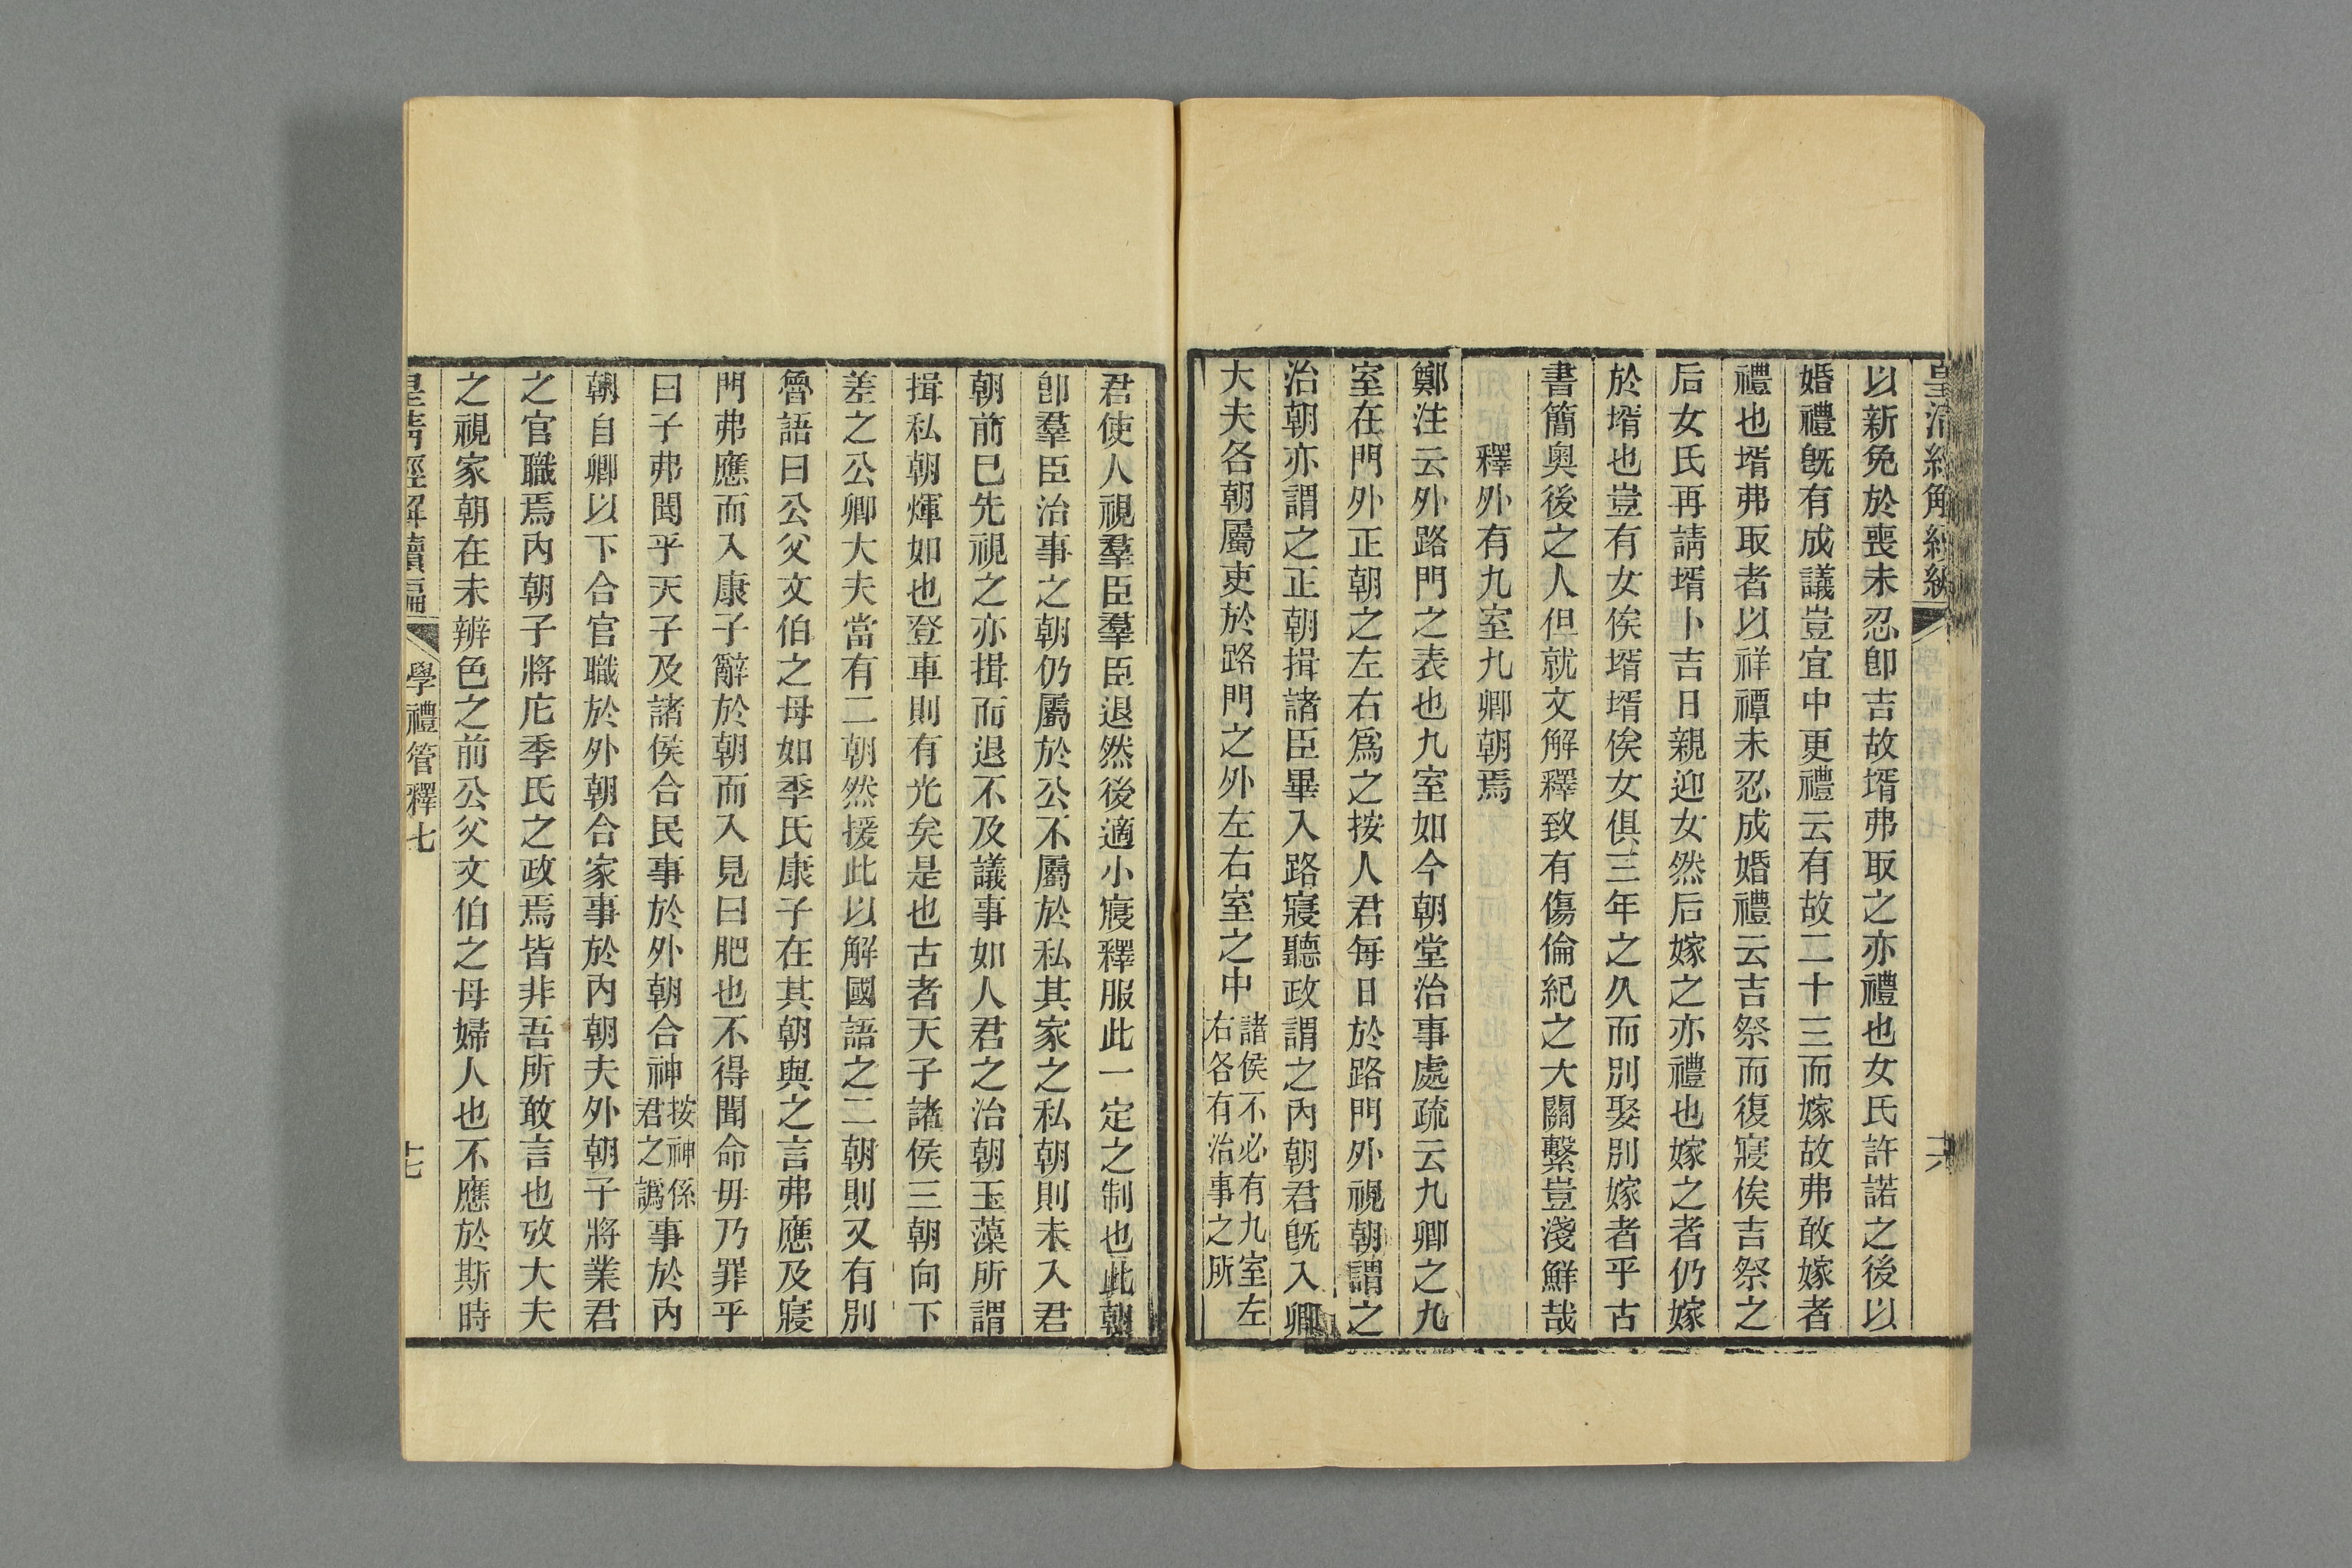 以新免於喪未忍卽吉故壻弗取之亦禮也女氏許諾之後以
婚禮旣有成議豈宜中更禮云有故二十三而嫁故弗敢嫁者
禮也壻弗取者以祥禫未忍成婚禮云吉祭而復寢俟吉祭之
后女氏再請壻卜吉日親迎女然后嫁之亦禮也嫁之者仍嫁
於壻也豈有女俟壻壻俟女俱三年之久而別娶別嫁者乎古
書簡奧後之人但就文解釋致有傷倫紀之大關繫豈淺鮮哉
釋外有九室九卿朝焉
鄭注云外路門之表也九室如今朝堂治事處疏云九卿之九
室在門外正朝之左右爲之按人君每日於路門外視朝謂之
治朝亦謂之正朝揖諸臣畢入路寢聽政謂之內朝君旣入卿
大夫各朝屬吏於路門之外左右室之中諸侯不必有九室左
右各有治事之所
君使人視羣臣羣臣退然後適小寢釋服此一定之制也此朝
卽羣臣治事之朝仍屬於公不屬於私其家之私朝則未入君
朝前已先視之亦揖而退不及議事如人君之治朝玉藻所謂
揖私朝煇如也登車則有光矣是也古者天子諸侯三朝向下
差之公卿大夫當有二朝然援此以解國語之二朝則又有別
魯語曰公父文伯之母如季氏康子在其朝與之言弗應及寢
門弗應而入康子辭於朝而入見曰肥也不得聞命毋乃罪乎
曰子弗聞乎天子及諸侯合民事於外朝合神按神係
君之譌事於內
朝自卿以下合官職於外朝合家事於內朝夫外朝子將業君
之官職焉內朝子將庀季氏之政焉皆非吾所敢言也攷大夫
之視家朝在未辨色之前公父文伯之母婦人也不應於斯時
皇清經解續編
學禮管釋七
十七